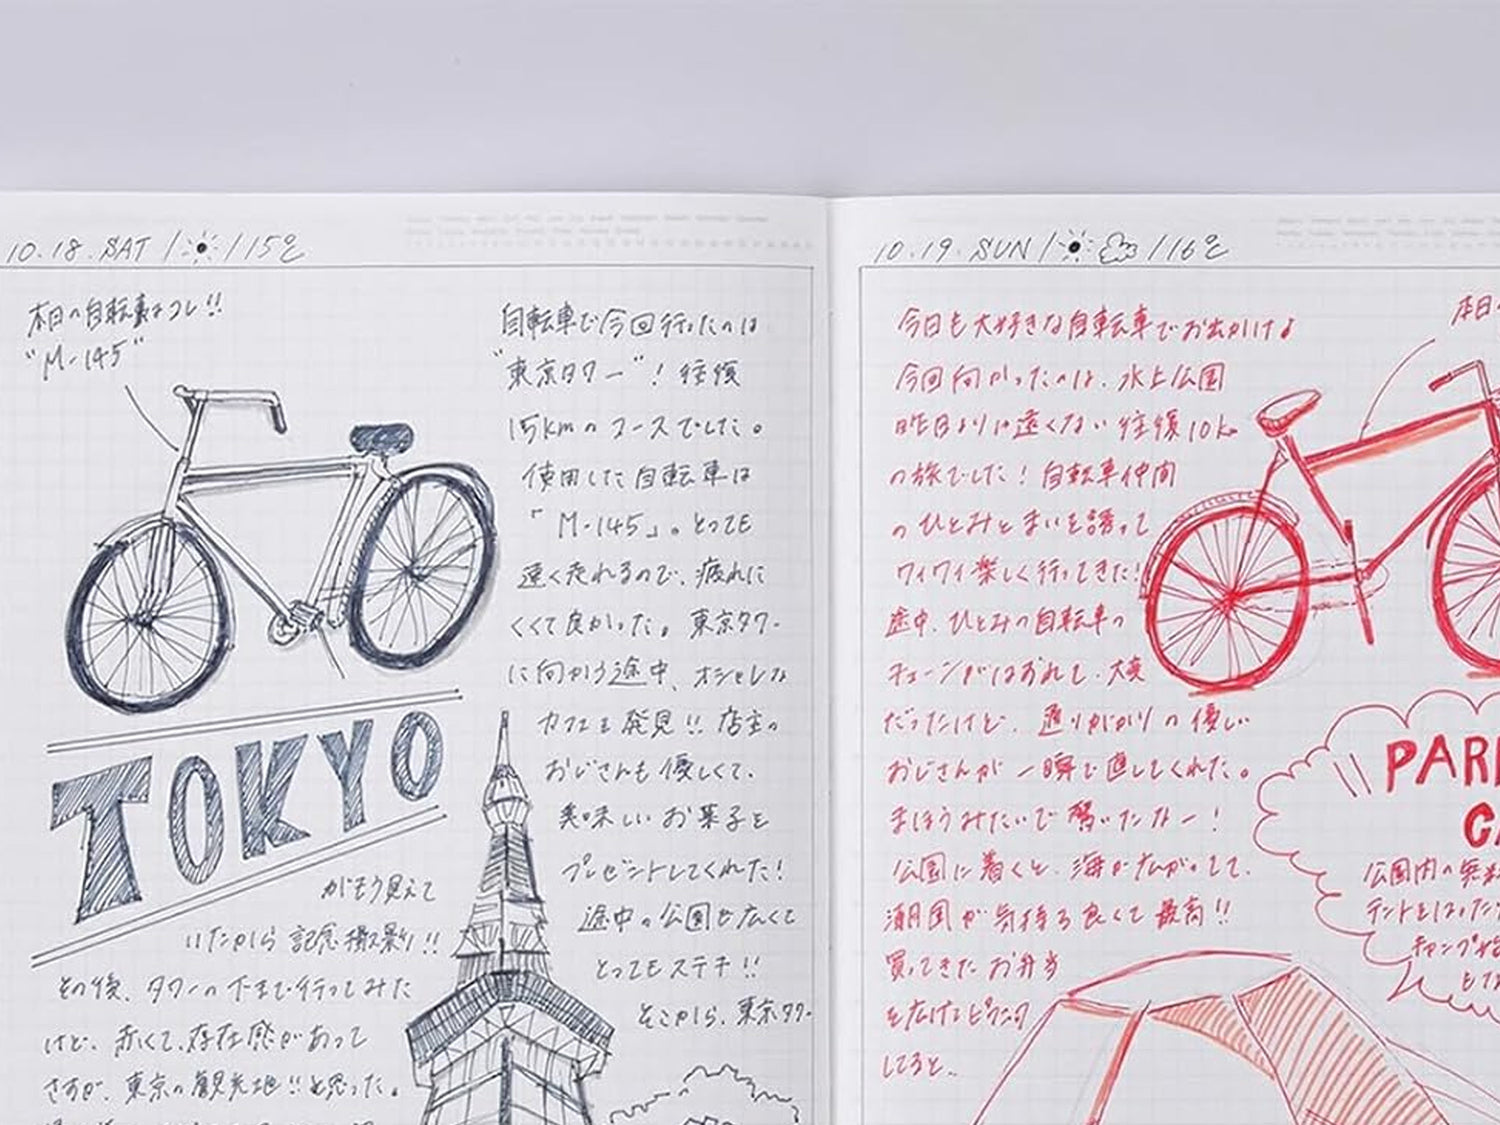 10.18.SAT / /15℃
本日の自転車はコレ!!
"M-145"
自転車で今回行ったのは
"東京タワー"! 往復
15kmのコースでした。
使用した自転車は
「M-145」。とっても
速く走れるので、疲れに
くくて良かった。東京タワー
に向かう途中、オシャレな
カフェも発見!! 店主の
おじさんも優しくて、
美味しいお菓子を
プレゼントしてくれた!
途中の公園も広くて
とってもステキ!!
そこから、東京タワー
TOKYO
がもう見えて
いたから記念撮影り!!
その後、タワーの下まで行ってみた
けど、赤くて、存在感があって
さすが、東京の観光地!!と思った。
10.19.SUN / /16℃
今日も大好きな自転車でお出かけ♪
今回向かったのは、水上公園
昨日よりは遠くない往復10km
の旅でした! 自転車仲間
のひとみとまいを誘って
ワイワイ楽しく行ってきた!
途中、ひとみの自転車の
チェーンがはずれて、大変
だったけど、通りがかりの優しい
おじさんが一瞬で直してくれた。
まほうみたいで驚いたなー!
公園に着くと、海が広がってて、
潮風が気持ち良くて最高!!
買ってきたお弁当
を広げてピクニック
してると、
本日
PAR
CA
公園内の無料
テントをはった
キャンプ